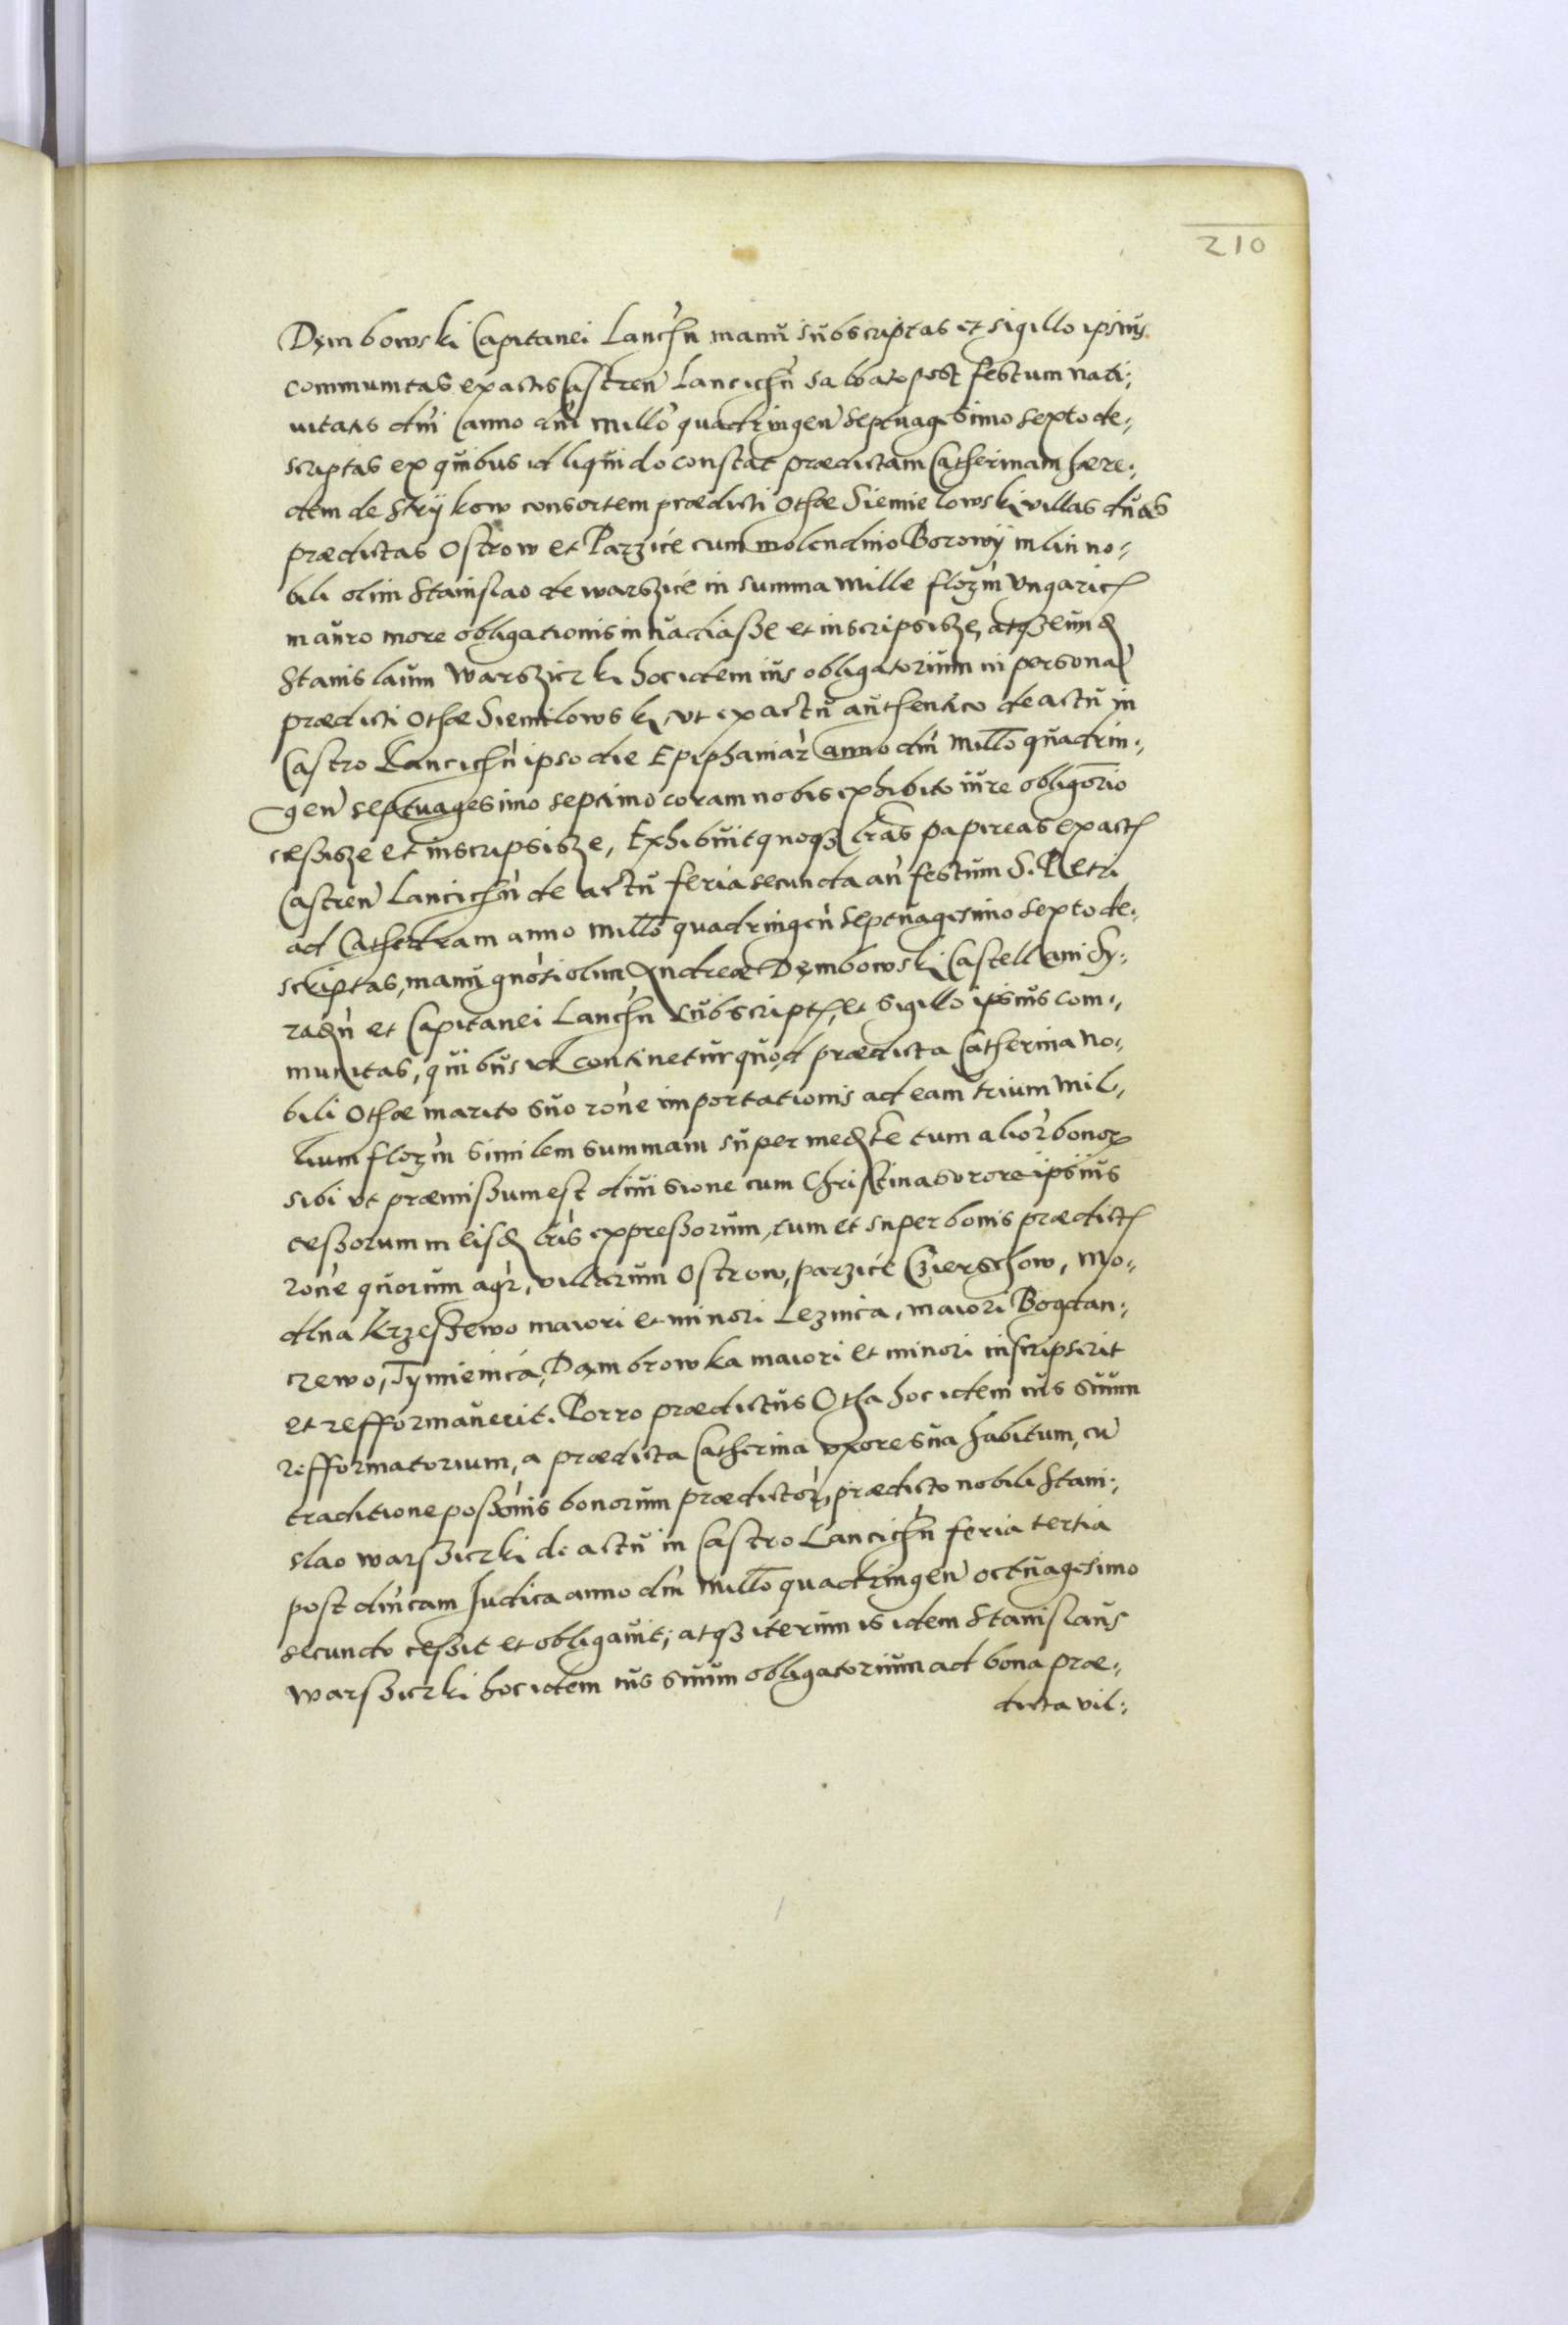 210
Dęmbowski Capitanei Lanchn manu subscriptas et sigillo ipsius
communitas ex actis Castren Lancichn sabbato post festum nati:
uitatis dni anno dni millo quadringen septuagesimo sexto de:
scriptas ex quibus id liquido constat prædictam Catherinam hære:
dem de Strykow consortem prædicti Othæ Siemielowski villas duas
prædictas Ostrow et Parzice cum molendino Borowy mlin no:
bili olim Stanislao de warszice in summa mille florin vngaric
in auro more obligationis inuadiasse et inscripsisse, atqз eund
Stanislaum Warszicki hoc idem ius obligatorium in persona
prædicti Othæ Siemilowski, vt ex actu authentico de actu in
Castro Lancichn ipso die Epiphaniar anno dni millo quadrin:
gen septuagesimo septimo coram nobis exhibito iure obligorio
cessisse et inscripsisse, Exhibuit quoqз lras papireas ex act
Castren Lancichn de actu feria secunda an festum S. Petri
ad Cathedram anno millo quadringen septuagesimo sexto de:
scriptas, manu gnosi olim Andreæ Dęmbowski Castellani Sy:
radn et Capitanei Lanchn subscript, et sigillo ipsius com:
munitas, quibus id continetur quod prædicta Catherina no:
bili Othæ marito suo rone importationis ad eam trium mil:
lium florin similem summam super med te tum alior bonor
sibi vt præmissum est diuisione cum Christina sorore ipsius
cessorum in eisd lris expressorum, tum et super bonis prædict
rone quorum agr, villarum Ostrow, parzice Czierschow, Mo:
dlna Krzeszewo maiori et minori Leznica, maiori Bogdan:
czewo, Tymienica, Dąmbrowka maiori et minori inscripserit
et refformauerit. Porro prædictus Otha hoc idem ius suum
refformatorium, a prædicta Catherina vxore sua habitum, cu
traditione possonis bonorum prædictor, prædicto nobili Stani:
slao warsziczki de actu in Castro Lancichn feria tertia
post dnicam Iudica anno dni millo quadringen octuagesimo
secundo cessit et obligauit; atqз iterum is idem Stanislaus
Warsziczki hoc idem ius suum obligatorium ad bona præ:
dicta vil: